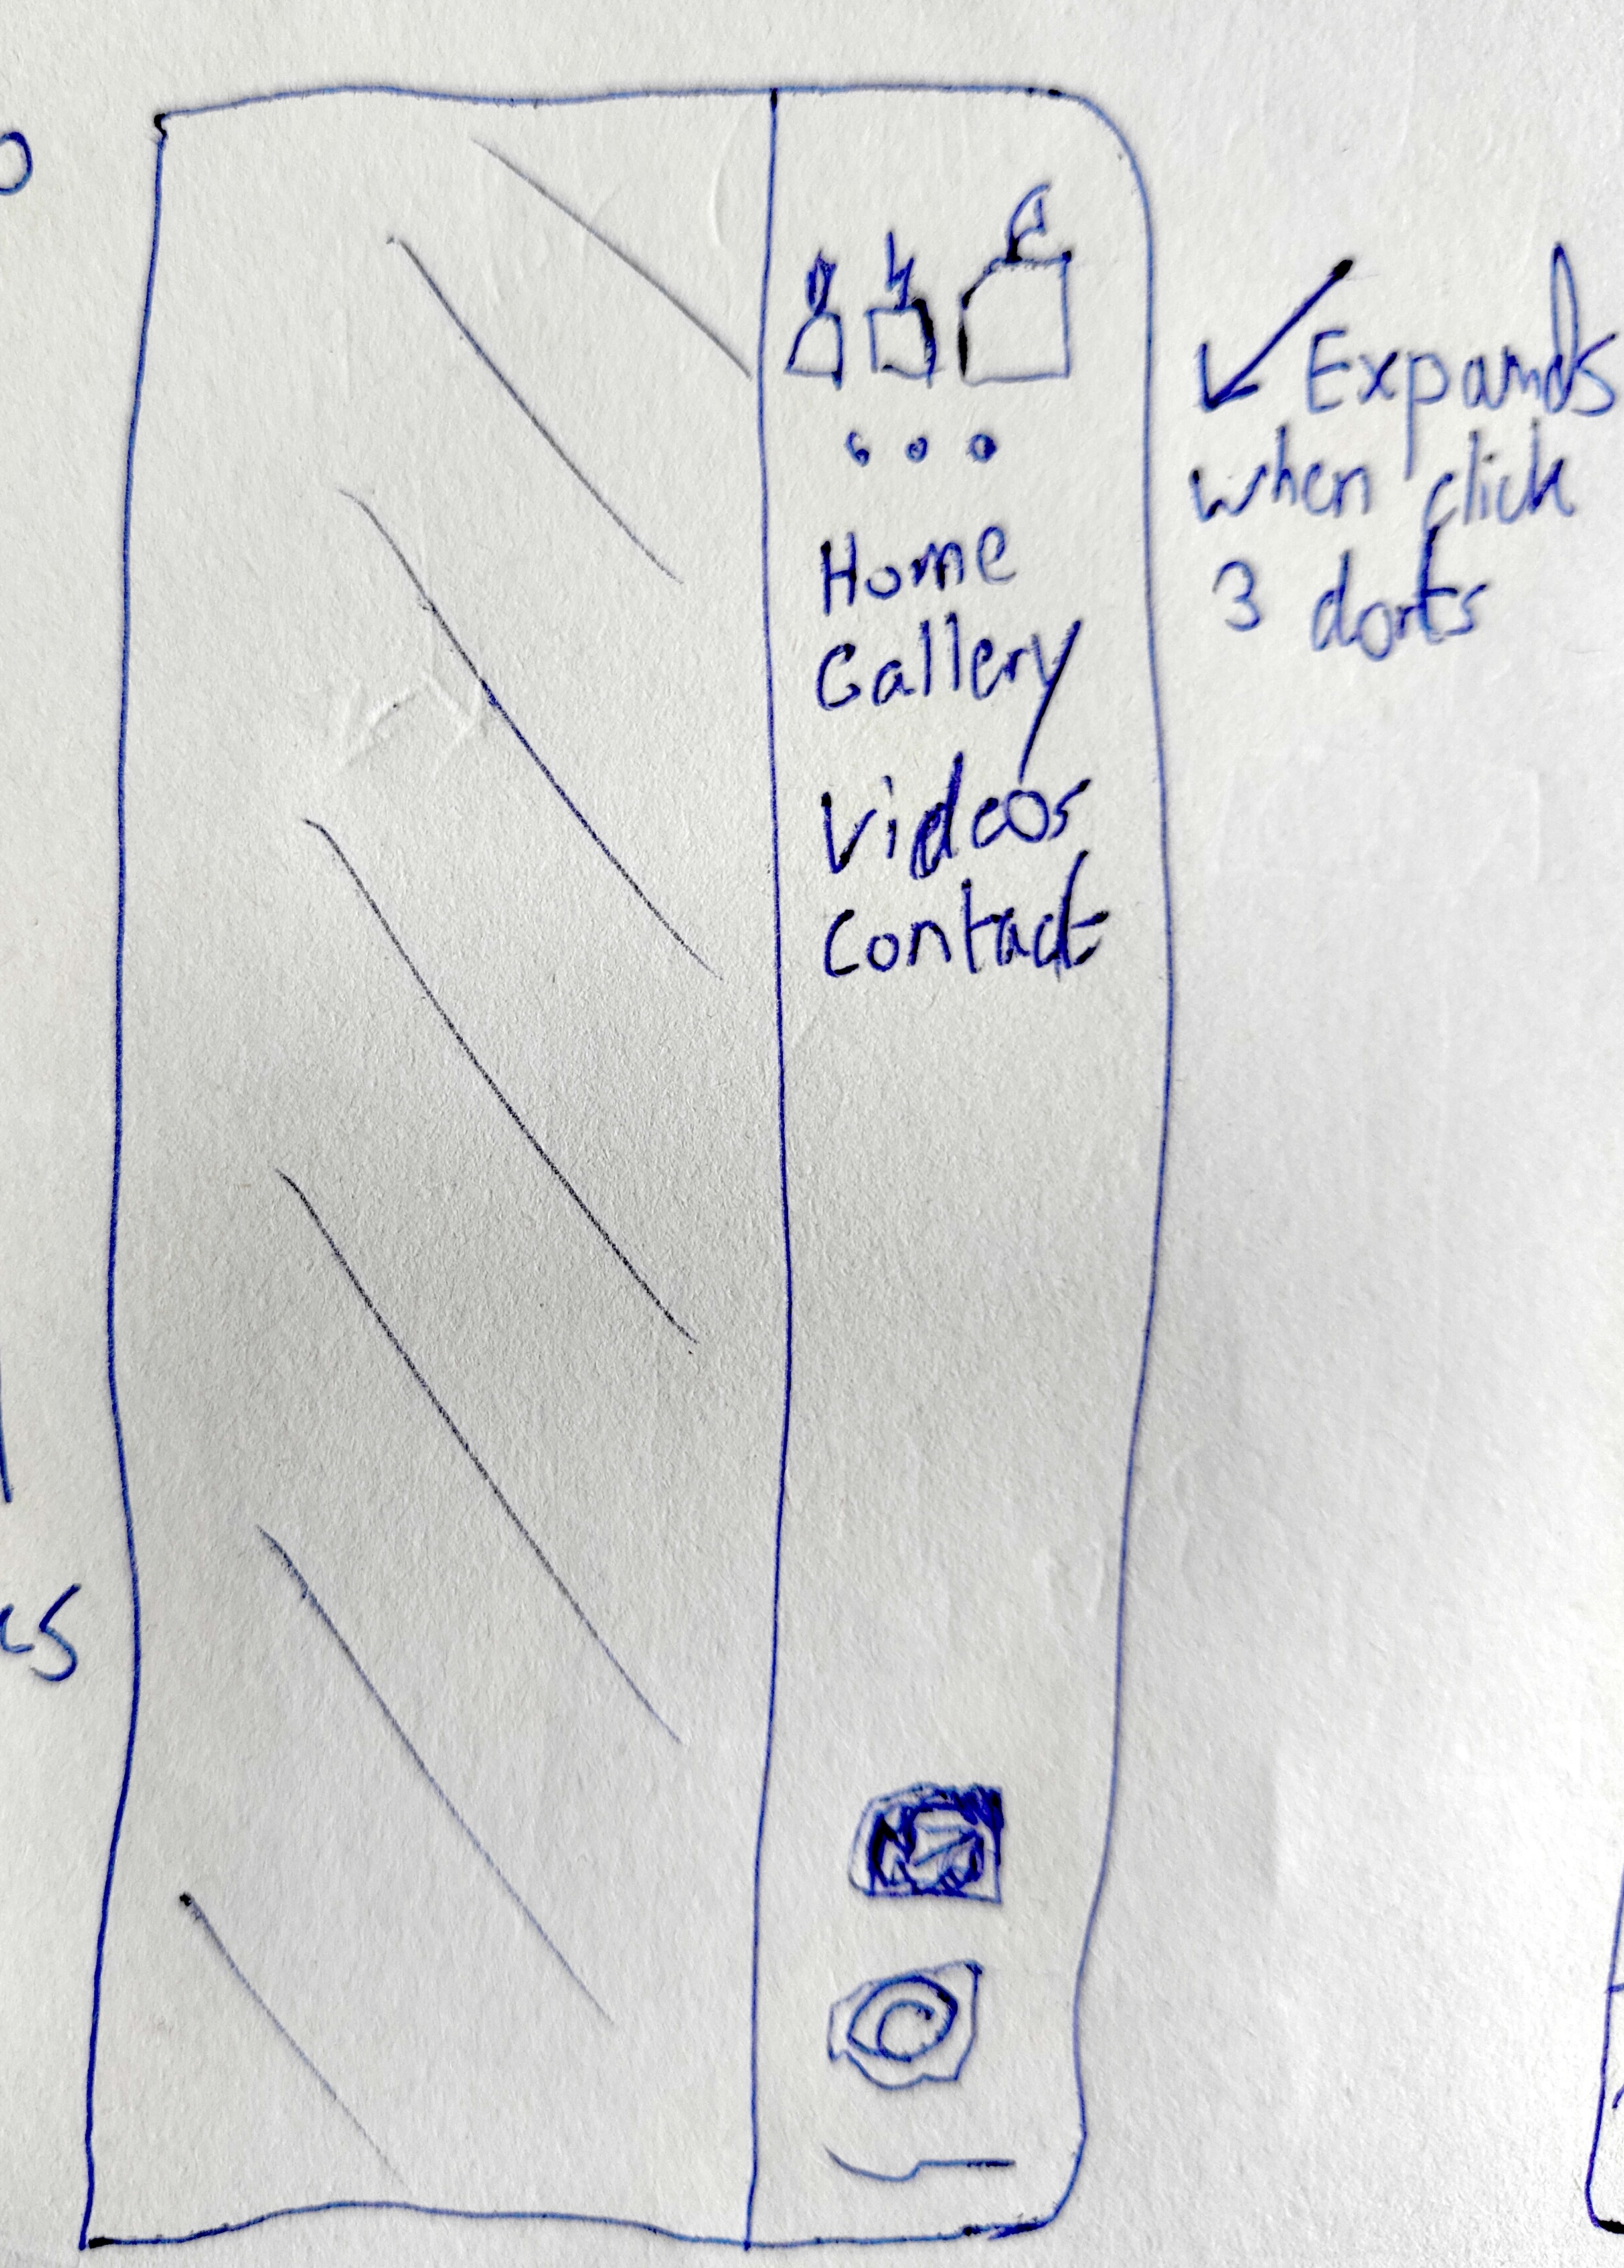 Home
Gallery
Videos
Contact
Expands
when click
3 dorts